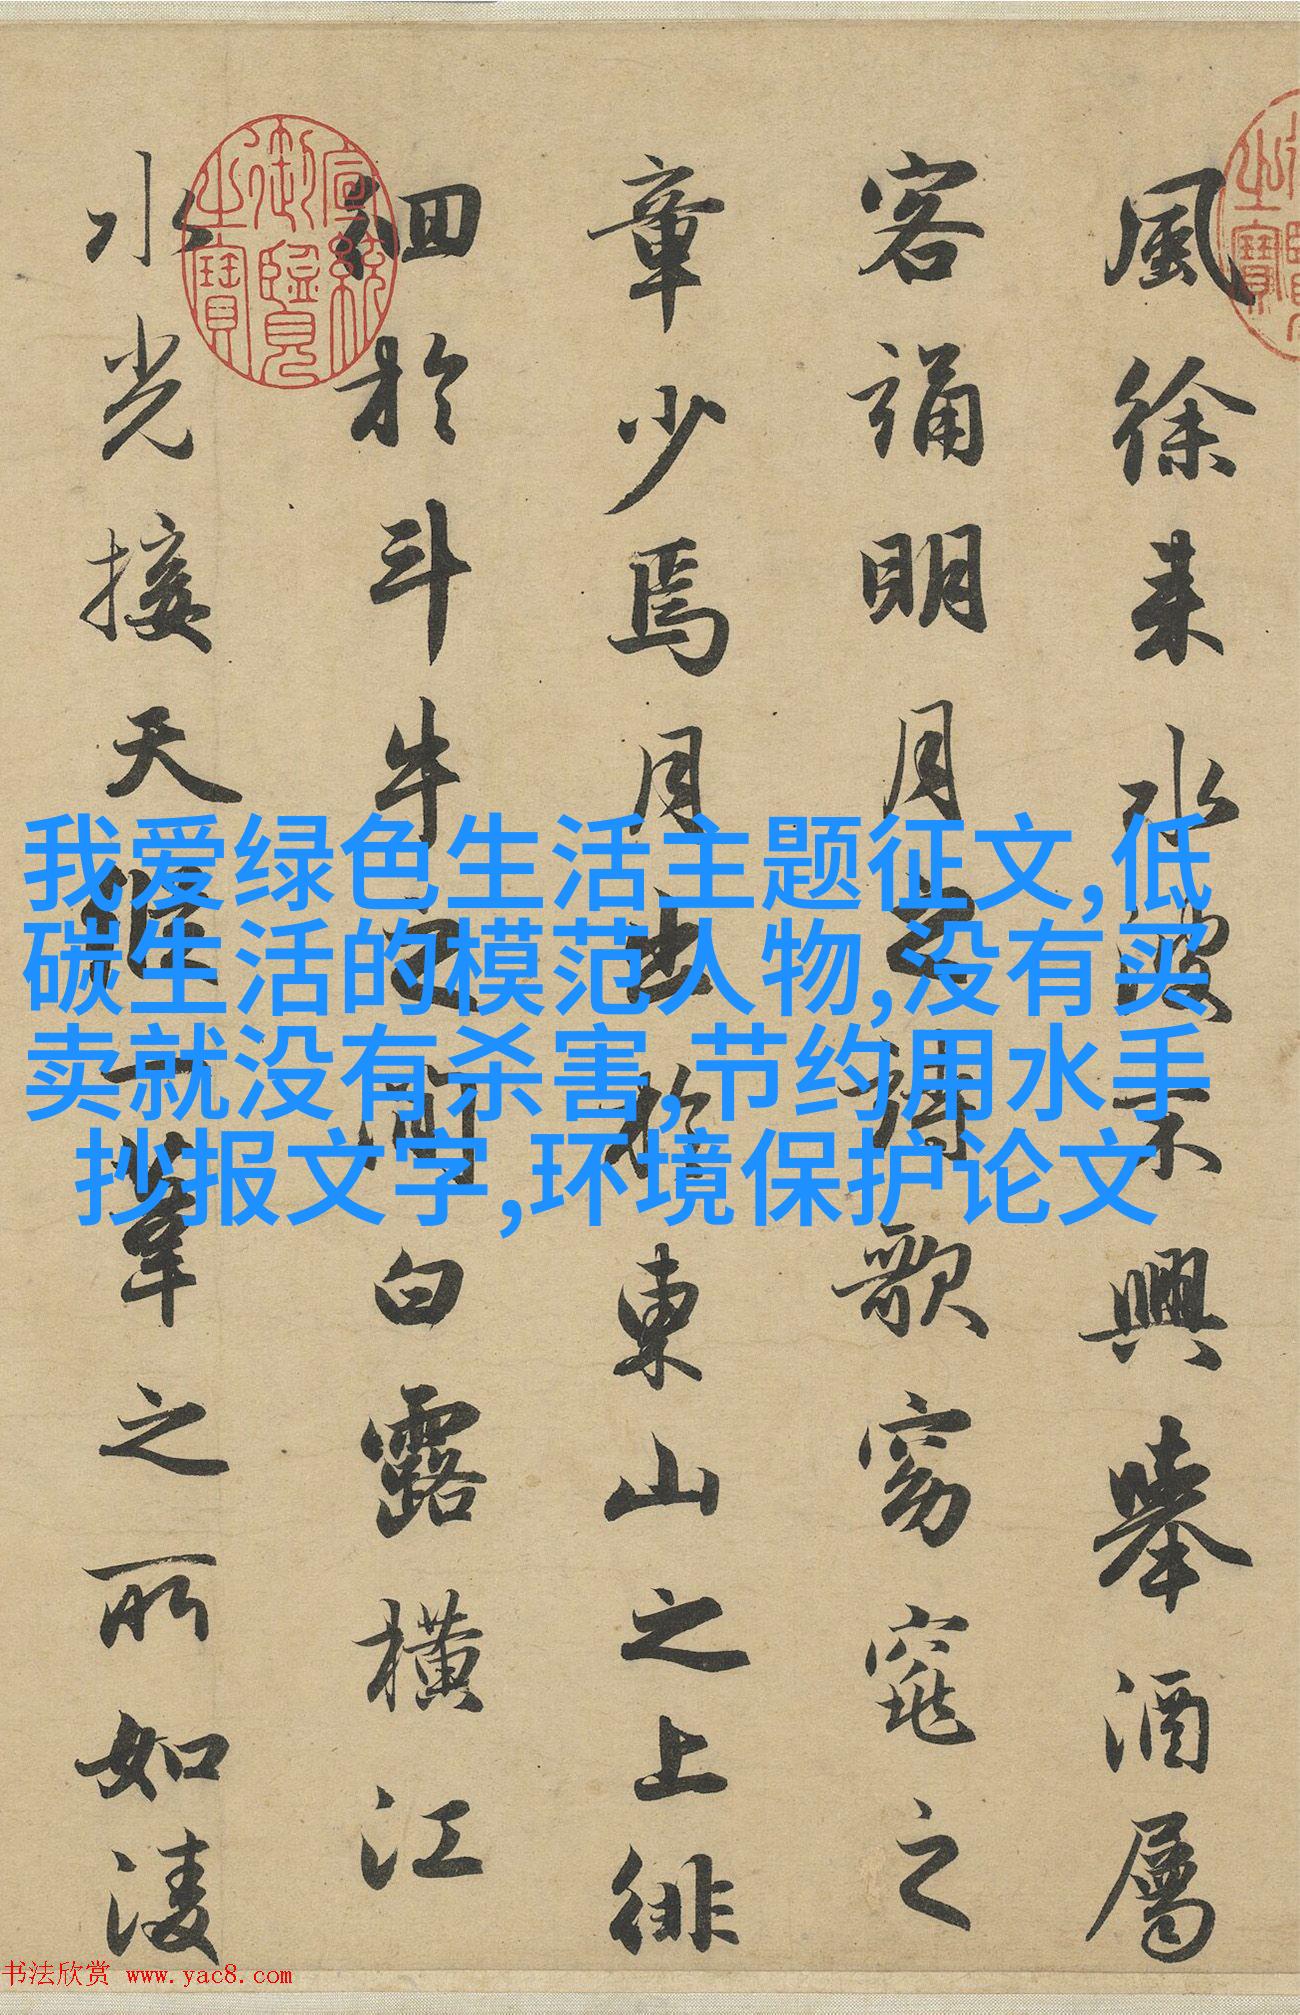 風徐来水波不興舉酒屬
客誦明月之詩歌窈窕之
章少焉月出於東山之上徘
徊於斗牛之間白露橫江
水光接天縱一葦之所如淩
宣統
御覽
之寶
我爱绿色生活主题征文,低
碳生活的模范人物,没有买
卖就没有杀害,节约用水手
抄报文字,环境保护论文
书法欣赏 www.yac8.com